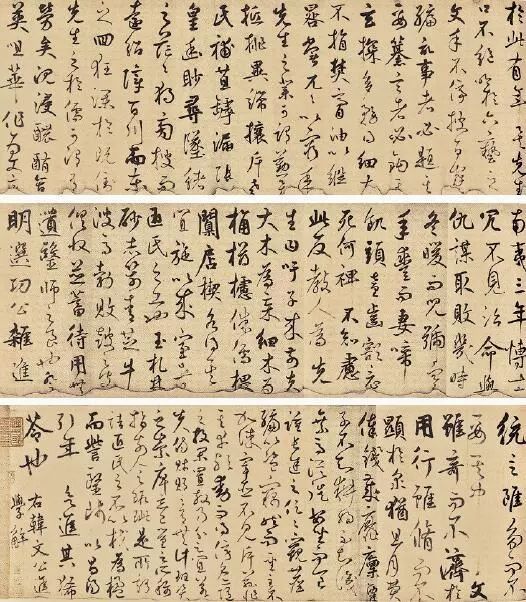 於此有年矣先生
口不絕吟於六藝之
文手不停披百家
編記事者必題其
要纂言者必鉤其
玄探多務得細大
不捐焚膏油以繼
晷常兀兀以窮年
先生之業可謂勤矣
觝排異端攘斥老
氏補苴罅漏張
皇幽眇尋墜緒
之茫茫獨旁搜而
遠紹障百川而東
之迴狂瀾於既倒
先生之於儒可謂有
勞矣沉浸醲郁含
英咀華作為文章
南夷三年博士
冗不見治命與
仇謀取敗幾時
冬暖而兒號寒
年豐而妻啼
飢頭童齒豁竟
死何裨不知慮
此反教人為先
生曰吁子來前夫
大木為杗細木為
桷欂櫨侏儒椳
闑扂楔各得其
宜施以成室者
匠氏之功也玉札丹
砂赤箭青芝牛
溲馬勃敗鼓之皮
俱收並蓄待用無
遺醫師之良也登
明選公雜進
統言雖多而不
要其中文
雖奇而不濟於
用行雖脩而不
顯於眾猶且月費
俸錢歲靡廩粟
子不知耕婦不知織
乘馬從徒安坐而食踵常
途之促促窺陳
編以盜竊然而聖主不
加誅宰臣不見斥茲非
其幸歟動而得謗名亦隨
之投閑置散乃分之宜若
夫商財賄之有亡計班資
之崇庳忘己量之所稱
指前人之瑕疵是所謂
詰匠氏之不以杙為楹
而訾醫師以昌陽
引年欲進其豨
苓也
右韓文公進
學解